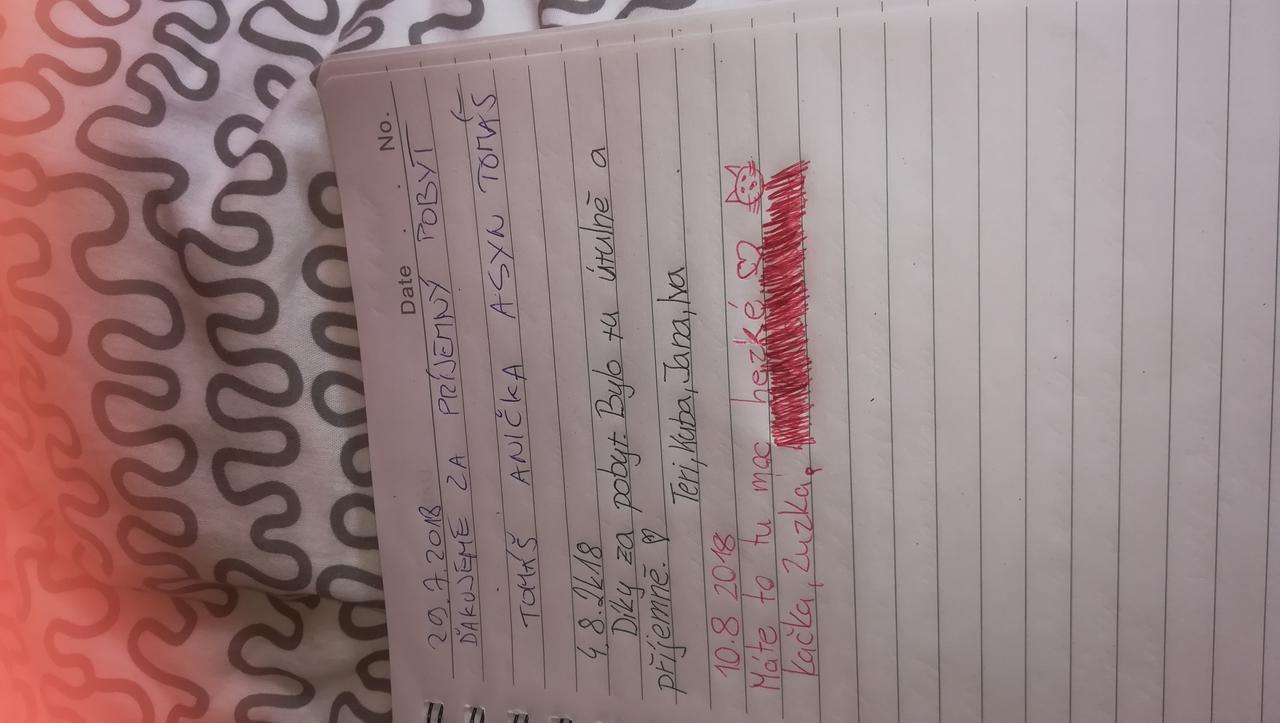 Date No.
29.7.2018
ĎAKUJEME ZA PRÍJEMNÝ POBYT
TOMÁŠ ANIČKA A SYN TOMÁŠ
4.8.2k18
Díky za pobyt. Bylo tu útulně a
příjemně. ♡
Teri, Kuba, Jana, Iva
10.8 2018
Máte to tu moc hezké ♡
Kačka, Zuzka,